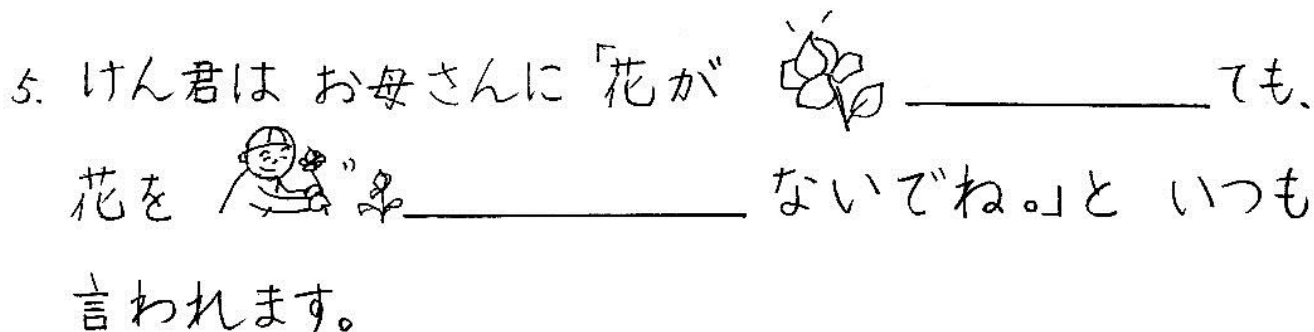 5. けん君は お母さんに「花が ____________ ても、
花を ______________ ないでね。」と いつも
言われます。